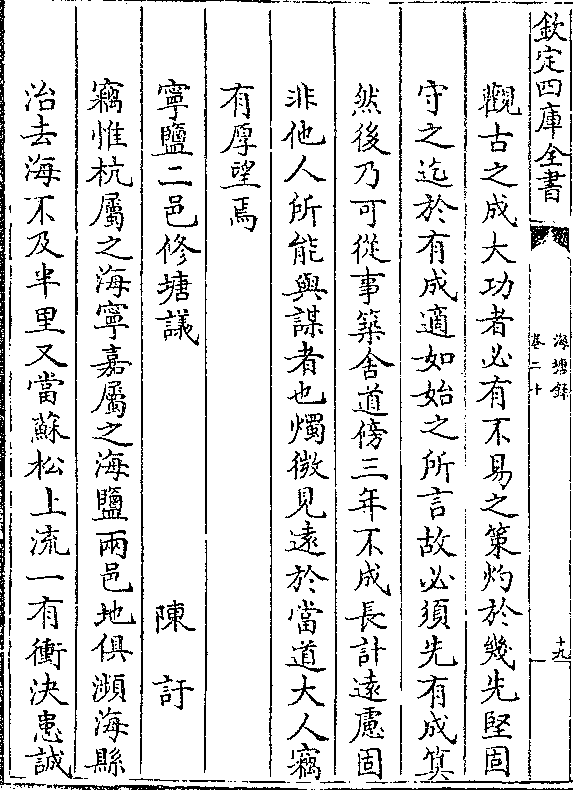 欽定四庫全書
海塘錄
卷二十
十九
觀古之成大功者必有不易之策灼於幾先堅固
守之迄於有成適如始之所言故必須先有成算
然後乃可從事築舍道傍三年不成長計遠慮固
非他人所能與謀者也燭微見遠於當道大人竊
有厚望焉
寧鹽二邑修塘議　陳訏
竊惟杭屬之海寧嘉屬之海鹽兩邑地俱瀕海縣
治去海不及半里又當蘇松上流一有衝決患誠